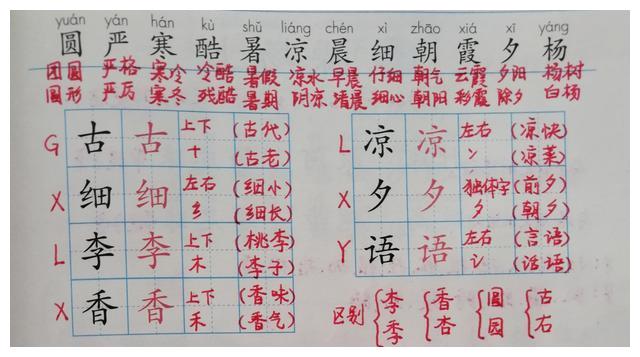 yuán yán hán kù shǔ liáng chén xì zhāo xiá xī yáng
圆 严 寒 酷 暑 凉 晨 细 朝 霞 夕 杨
团圆 严格 寒冷 冷酷 暑假 凉水 早晨 仔细 朝气 云霞 夕阳 杨树
圆形 严厉 寒冬 残酷 暑期 阴凉 清晨 细心 朝阳 彩霞 除夕 白杨
G 古 古 上下 (古代) L 凉 凉 左右 (凉快)
十 (古老) 冫 (凉菜)
X 细 细 左右 (细小) X 夕 夕 独体字 (前夕)
纟 (细长) 夕 (朝夕)
L 李 李 上下 (桃李) Y 语 语 左右 (言语)
木 (李子) 讠 (话语)
X 香 香 上下 (香味) 区别 { 李 { 香 { 圆 { 古
禾 (香气) 季 杏 园 右